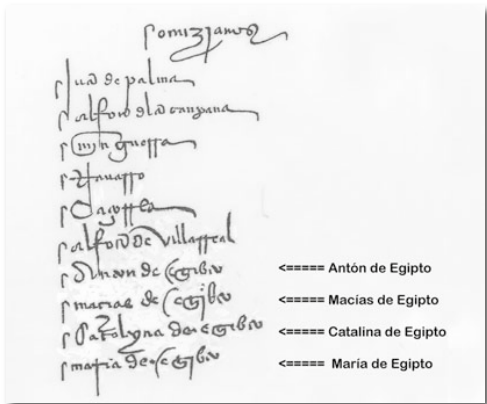 Juã de palma
alfon dla canpana
min guerra
Navarro

alfon de villarreal
Anton de egibto <===== Antón de Egipto
macias de egibto <===== Macías de Egipto
Catalyna de egibto <===== Catalina de Egipto
maria de egibto <===== María de Egipto